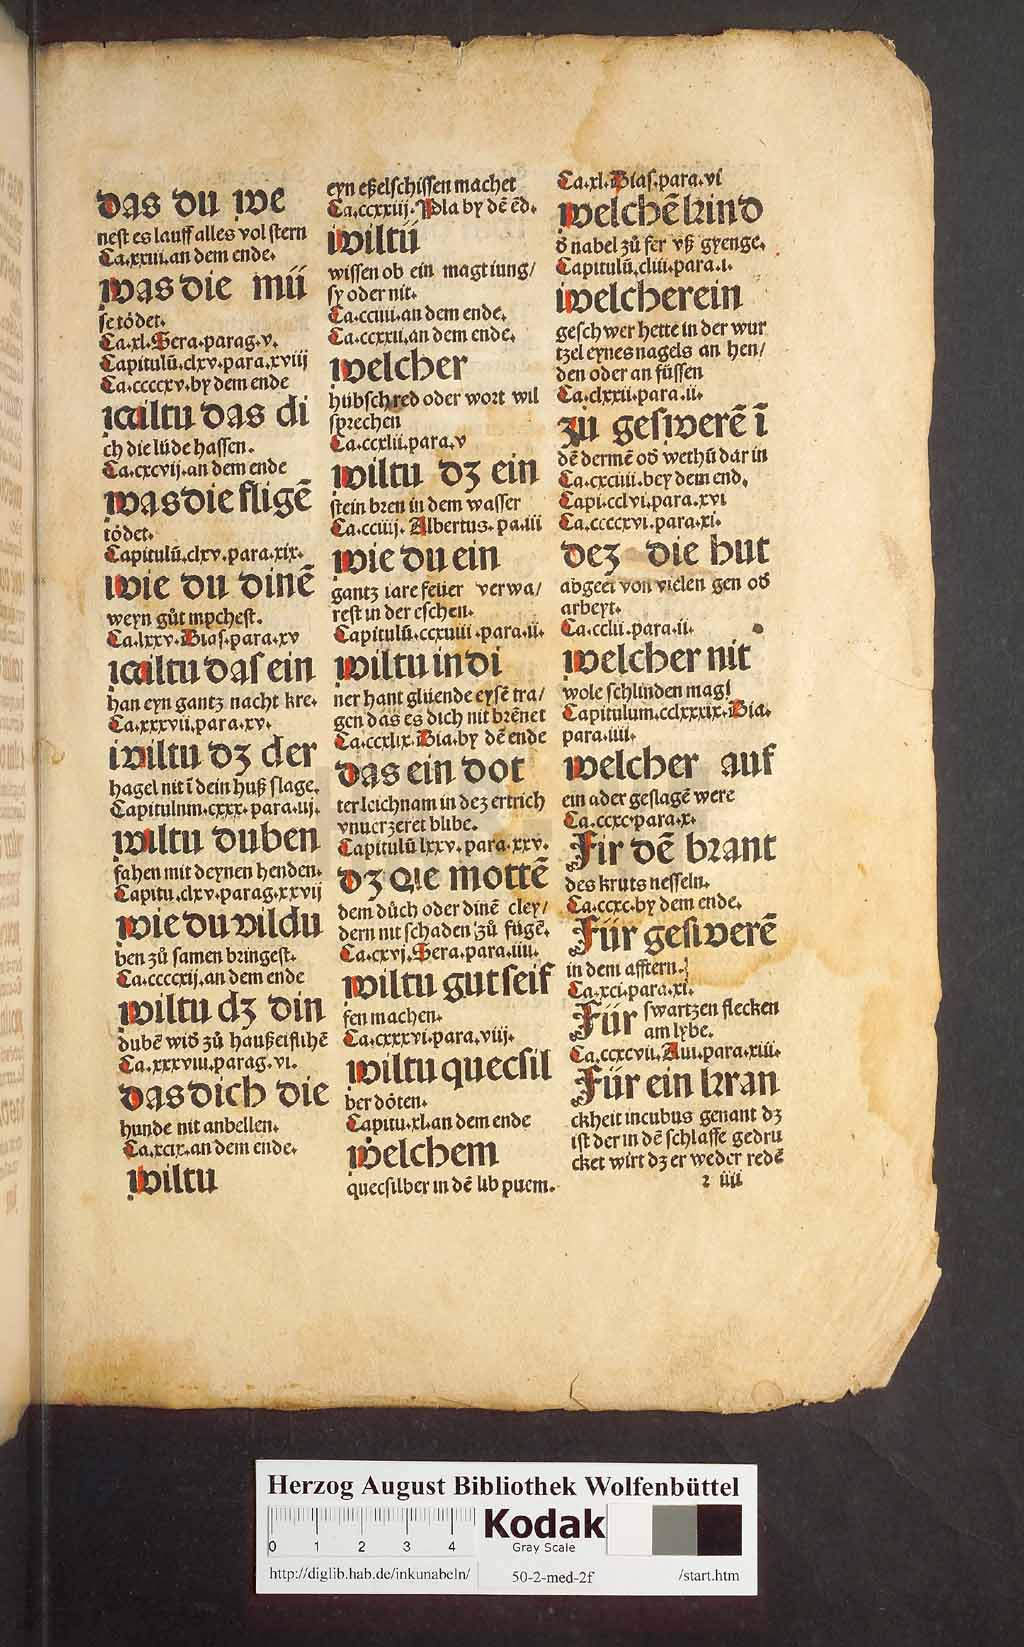 das du we
nest es lauff alles vol stern
Ca.xxiii.an dem ende.
was die mü
se tödet.
Ca.xl.Sera.parag.v.
Capitulū.clxv.para.xviij
Ca.ccccxv.by dem ende
wiltu das di
ch die lüde hassen.
Ca.cxcvij.an dem ende
was die fligē
tödet.
Capitulū.clxv.para.xix.
wie du dinē
weyn gůt mpchest.
Ca.lxxv.Bias.para.xv
wiltu das ein
han eyn gantz nacht kre.
Ca.xxxvii.para.xv.
wiltu dz der
hagel nit ī dein huß slage.
Capitulum.cxxx.para.iij.
wiltu duben
fahen mit deynen henden.
Capitu.clxv.parag.xxvij
wie du vil du
ben zů samen bringest.
Ca.ccccxij.an dem ende
wiltu dz din
dubē wid zů haußeiflihē
Ca.xxxviii.parag.vi.
das dich die
hunde nit anbellen.
Ca.xcix.an dem ende.
wiltu
eyn eßelschissen machet
Ca.ccxxiij.Pla by dē ēd.
wiltü
wissen ob ein magt iung/
sy oder nit.
Ca.cciiii.an dem ende.
Ca.ccxxii.an dem ende.
welcher
hübsch red oder wort wil
sprechen
Ca.ccxlii.para.v
wiltu dz ein
stein bren in dem wasser
Ca.cciij.Albertus.pa.iii
wie du ein
gantz iare feüer verwa/
rest in der eschen.
Capitulū.ccxuiii.para.ii.
wiltu in di
ner hant glüende eysē tra/
gen das es dich nit brēnet
Ca.ccxlix.Bia.by dē ende
das ein dot
ter leichnam in dez ertrich
vnuerzeret blibe.
Capitulū lxxv.para.xxv.
dz die mottē
dem důch oder dinē cley/
dern nit schaden zů fügē.
Ca.cxvj.Sera.para.iiii.
wiltu gut seif
fen machen.
Ca.cxxxvi.para.viij.
wiltu quecsil
ber döten.
Capitu.xl.an dem ende
welchem
quecsilber in dē lib quem.
Ca.xl.Bias.para.vi
welchē kind
d nabel zů fer vß gyenge.
Capitulū.cliii.para.i.
welcher ein
geschwer hette in der wur
tzel eynes nagels an hen/
den oder an füssen
Ca.clxxii.para.ii.
zů geswerē ī
dē dermē od wethů dar in
Ca.cxciiii.bey dem end.
Capi.cclvi.para.xvi
Ca.ccccxvi.para.xi.
dez die hut
abgeet von vielen gen od
arbeyt.
Ca.cclii.para.ii.
welcher nit
wole schlinden mag
Capitulum.cclxxxix.Bia.
para.iiii.
welcher auf
ein ader geslagē were
Ca.ccxc.para.x.
Fir dē brant
des kruts nesseln.
Ca.ccxc.by dem ende.
Für geswerē
in dem afftern.
Ca.xci.para.xi.
Für swartzen flecken
am lybe.
Ca.ccxcvii.Aui.para.xiii.
Für ein kran
ckheit incubus genant dz
ist der in dē schlaffe gedru
cket wirt dz er weder redē
2 iiii
Herzog August Bibliothek Wolfenbüttel
0 1 2 3 4
Kodak
Gray Scale
http://diglib.hab.de/inkunabeln/ 50-2-med-2f /start.htm